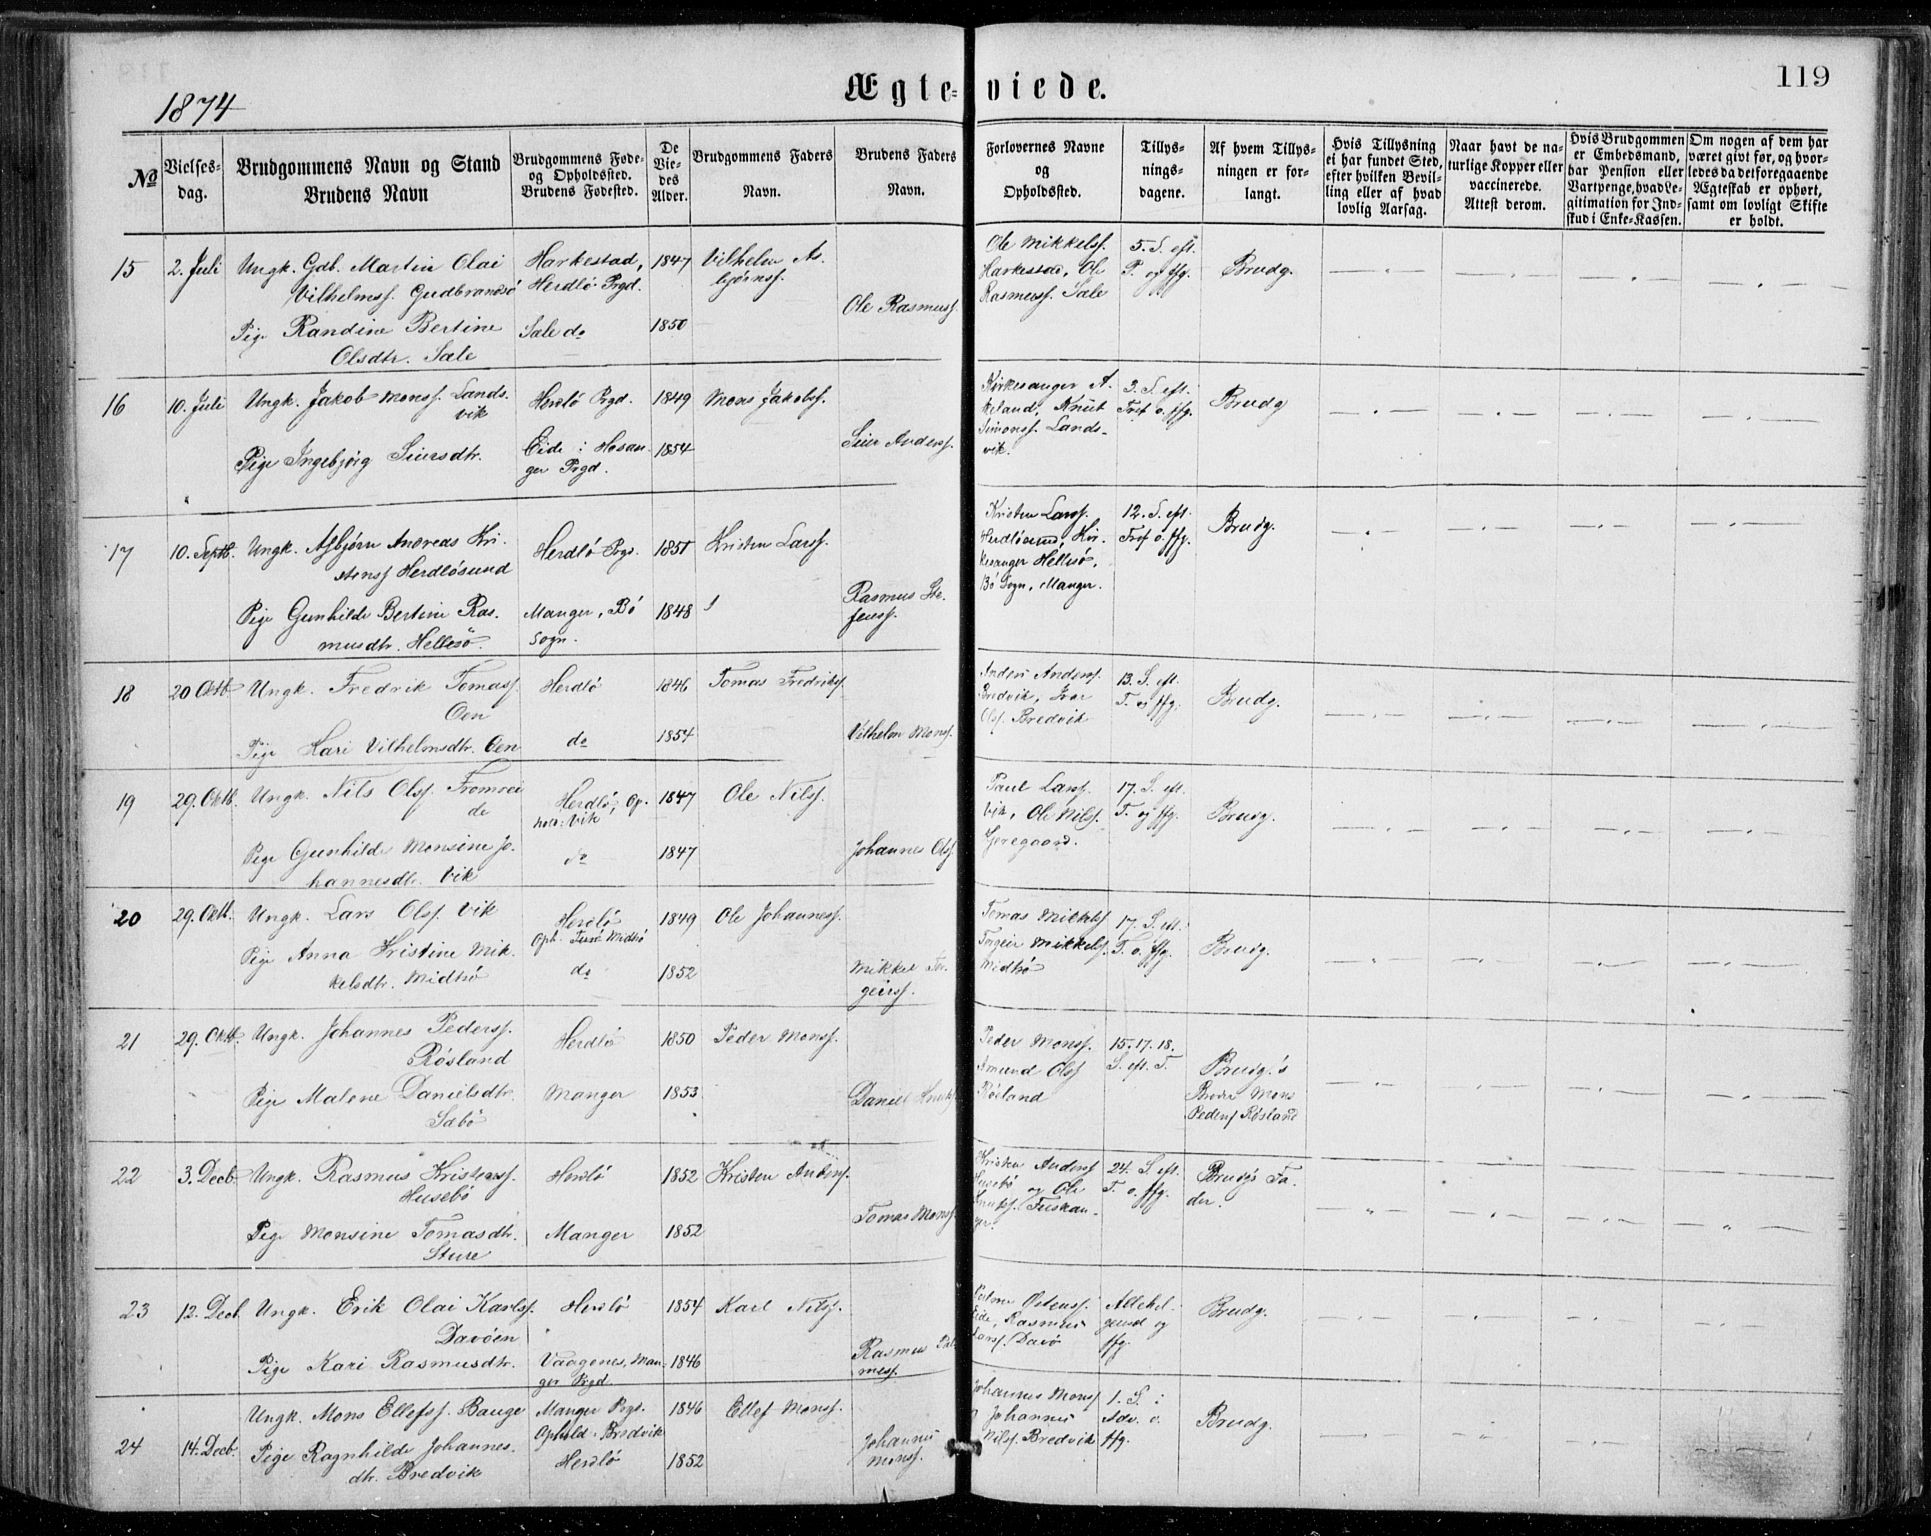 1874
Ægteviede.
119
No
Vielses-
dag.
Brudgommens Navn og Stand
Brudens Navn
Brudgommens Føde-
og Opholdssted.
Brudens Fødested.
De
Vie-
des
Alder.
Brudgommens Faders
Navn.
Brudens Faders
Navn.
Forlovernes Navne
og
Opholdssted.
Tillys-
nings-
dagene.
Af hvem Tillys-
ningen er for-
langt.
Hvis Tillysning
ei har fundet Sted,
efter hvilken Bevil-
ling eller af hvad
lovlig Aarsag.
Naar havt de na-
turlige Kopper eller
vaccinerede.
Attest derom.
Hvis Brudgommen
er Embedsmand,
har Pension eller
Vartpenge, hvad Le-
gitimation for Ind-
skud i Enke-Kassen.
Om nogen af dem har
været givt før, og hvor-
ledes da det foregaaende
Ægteskab er ophørt,
samt om lovligt Skifte
er holdt.
15
2. Juli
Ungk. Gdb. Martin Olai
Vilhelmss. Gudbrandsø
Pige Randine Bertine
Olsdtr. Sæle
Harkestad,
Herdlø Prgd.
Sæle do
1847
1850
Vilhelm As-
bjørnss.
Ole Rasmuss.
Ole Mikkelss.
Harkestad, Ole
Rasmuss. Sæle
5. S. eft.
P. og ffg.
Brudg.
16
10. Juli
Ungk. Jakob Monss. Lands-
vik
Pige Ingebjørg Siersdtr.
Herdlø Prgd.
Eide i Hosan-
ger Prgd.
1849
1854
Mons Jakobss.
Seier Anderss.
Kirkesanger A.
keland, Knut
Simonss. Lands-
vik.
3. S. eft.
Tref o. ffg.
Brudg
17
10. Septb.
Ungk. Asbjørn Andreas Kri-
stenss Herdløsund
Pige Gunhilde Bertine Ras-
musdtr. Hellesø.
Herdlø Prgd.
Manger, Bø
Sogn.
1851
1848
Kristen Larss.
Rasmus Ste-
fenss.
Kristen Larss.
Herdløsund, Kir-
kesanger Hellesø,
Bø Sogn, Manger.
12. S. eft.
Tref o. ffg.
Brudg.
18
20 Oktb
Ungk. Fredrik Tomass.
Oen
Pige Kari Vilhelmsdtr. Oen
Herdlø
do
1846
1854
Tomas Fredrikss.
Vilhelm Monss.
Anders Anderss.
Bredvik, Ivar
Olss. Bredvik
13. S. eft.
T. og ffg.
Brudg.
19
29. Oktb.
Ungk. Nils Olss. Fromrei
de
Pige Gunhilde Monsine Jo-
hannesdtr. Vik
Herdlø, Op-
hold: Vik
do
1847
1847
Ole Nilss.
Johannes Olss.
Paul Larss.
Vik, Ole Nilss.
Gjeregaard.
17. S. eft.
T. og ffg.
Brudg.
20
29. Oktb.
Ungk. Lars Olss. Vik
Pige Anna Kristine Mik-
kelsdtr. Midtsø
Herdlø
Oph. Midtsø
do
1849
1852
Ole Johanness.
Mikkel Tor-
geirss.
Tomas Mikkelss
Torgeir Mikkelss.
Midtsø
17. S. eft.
T. o. ffg.
Brudg.
21
29. Oktb.
Ungk. Johannes Pederss.
Røsland
Pige Malene Danielsdtr.
Sæbø
Herdlø
Manger
1850
1853
Peder Monss.
Daniel Knutss
Peder Monss.
Amund Olss
Røsland
15. 17. 18.
S. eft. T.
Brudg.'s
Broder Mons
Pederss Røsland
22
3. Decb.
Ungk. Rasmus Kristenss.
Husebø
Pige Monsine Tomasdtr.
Sture
Herdlø
Manger
1852
1852
Kristen Anderss.
Tomas Monss.
Kristen Anderss
Husebø og Ole
Knutss. Tuskan-
ger.
24. S. eft.
T. o. ffg.
Brudg's Fa-
der.
23
12. Decb.
Ungk. Erik Olai Karlss.
Davøen
Pige Kari Rasmusdtr.
Herdlø
Vaagenes, Man-
ger Prgd.
1854
1846
Karl Nilss.
Rasmus Pal-
mess.
Østenss.
Eide, Rasmus
Larss. Davø
Allehel-
gensd og
ffg.
Brudg.
24
14. Decb.
Ungk. Mons Ellefss. Bauge
Pige Ragnhilde Johannes-
dtr. Bredvik
Manger Prgd.
Ophold: Bredvik
Herdlø
1846
1852
Ellef Monss.
Johannes
Monss.
Johannes Monss
Johannes
Nilss. Bredvik
1. S. i
Adv. o.
ffg.
Brudg.